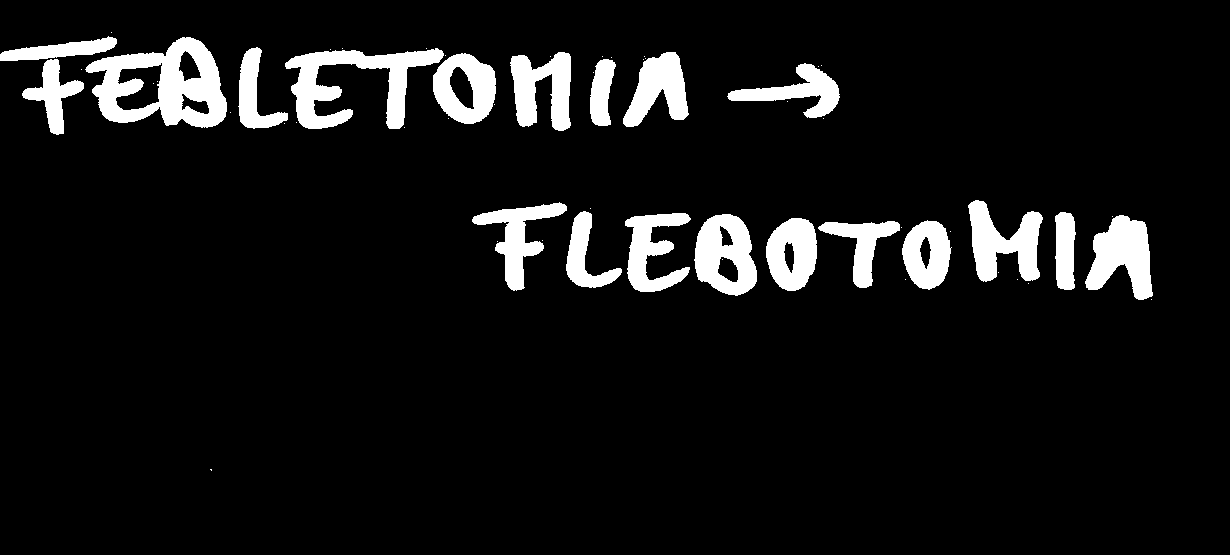 FEBLETOMIA →
FLEBOTOMIA